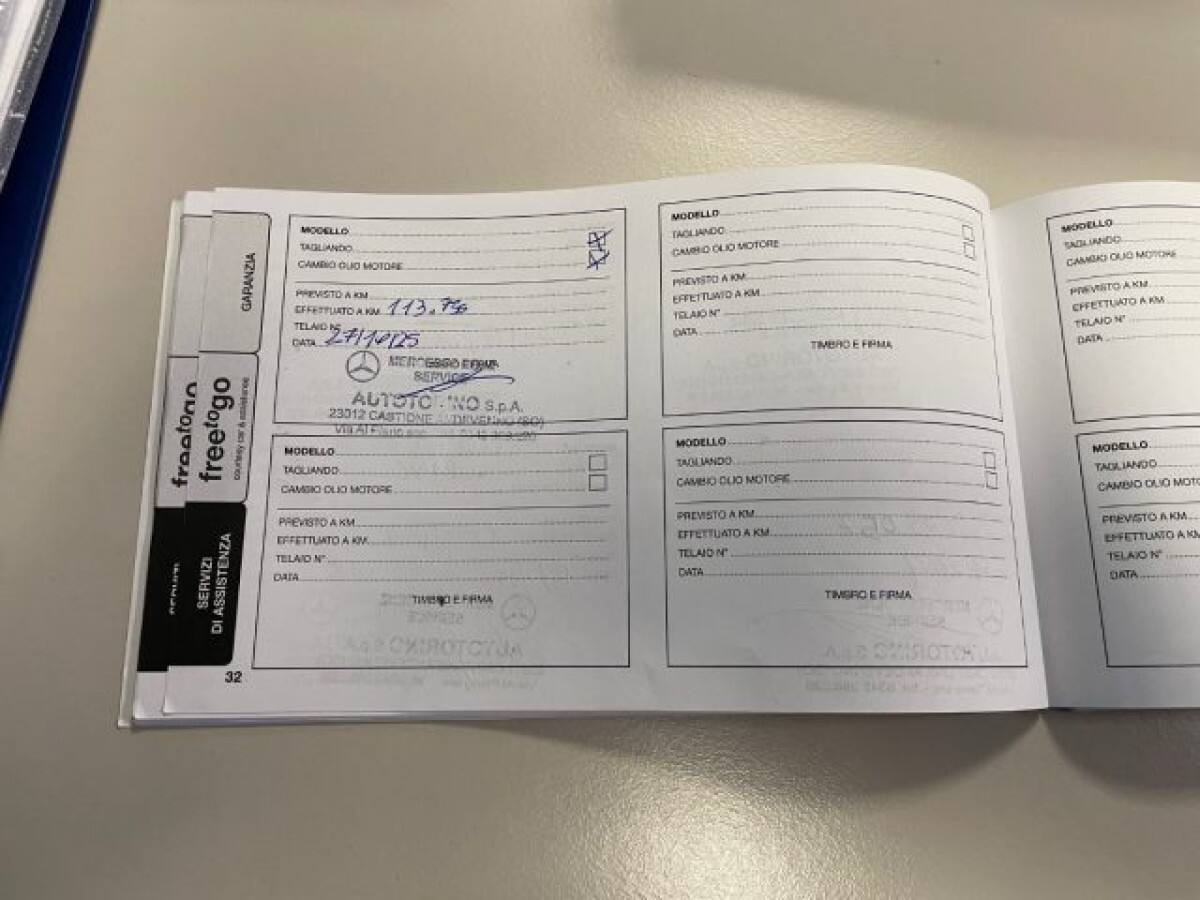 GARANZIA
freetogo
freetogo
courtesy car & assistance
SERVIZI
DI ASSISTENZA
32
MODELLO
TAGLIANDO
CAMBIO OLIO MOTORE
PREVISTO A KM
EFFETTUATO A KM
TELAIO N°
DATA
SERVICE
AUTOTORINO S.p.A.
23012 CASTIONE ANDEVENNO (SO)
MODELLO
TAGLIANDO
CAMBIO OLIO MOTORE
PREVISTO A KM
EFFETTUATO A KM
TELAIO N°
DATA
TIMBRO E FIRMA
MODELLO
TAGLIANDO
CAMBIO OLIO MOTORE
PREVISTO A KM
EFFETTUATO A KM
TELAIO N°
DATA
TIMBRO E FIRMA
MODELLO
TAGLIANDO
CAMBIO OLIO MOTORE
PREVISTO A KM
EFFETTUATO A KM
TELAIO N°
DATA
TIMBRO E FIRMA
MODELLO
TAGLIANDO
CAMBIO OLIO MOTORE
PREVISTO A KM
EFFETTUATO A KM
TELAIO N°
DATA
MODELLO
TAGLIANDO
CAMBIO OLIO
PREVISTO A KM
EFFETTUATO A KM
TELAIO N°
DATA